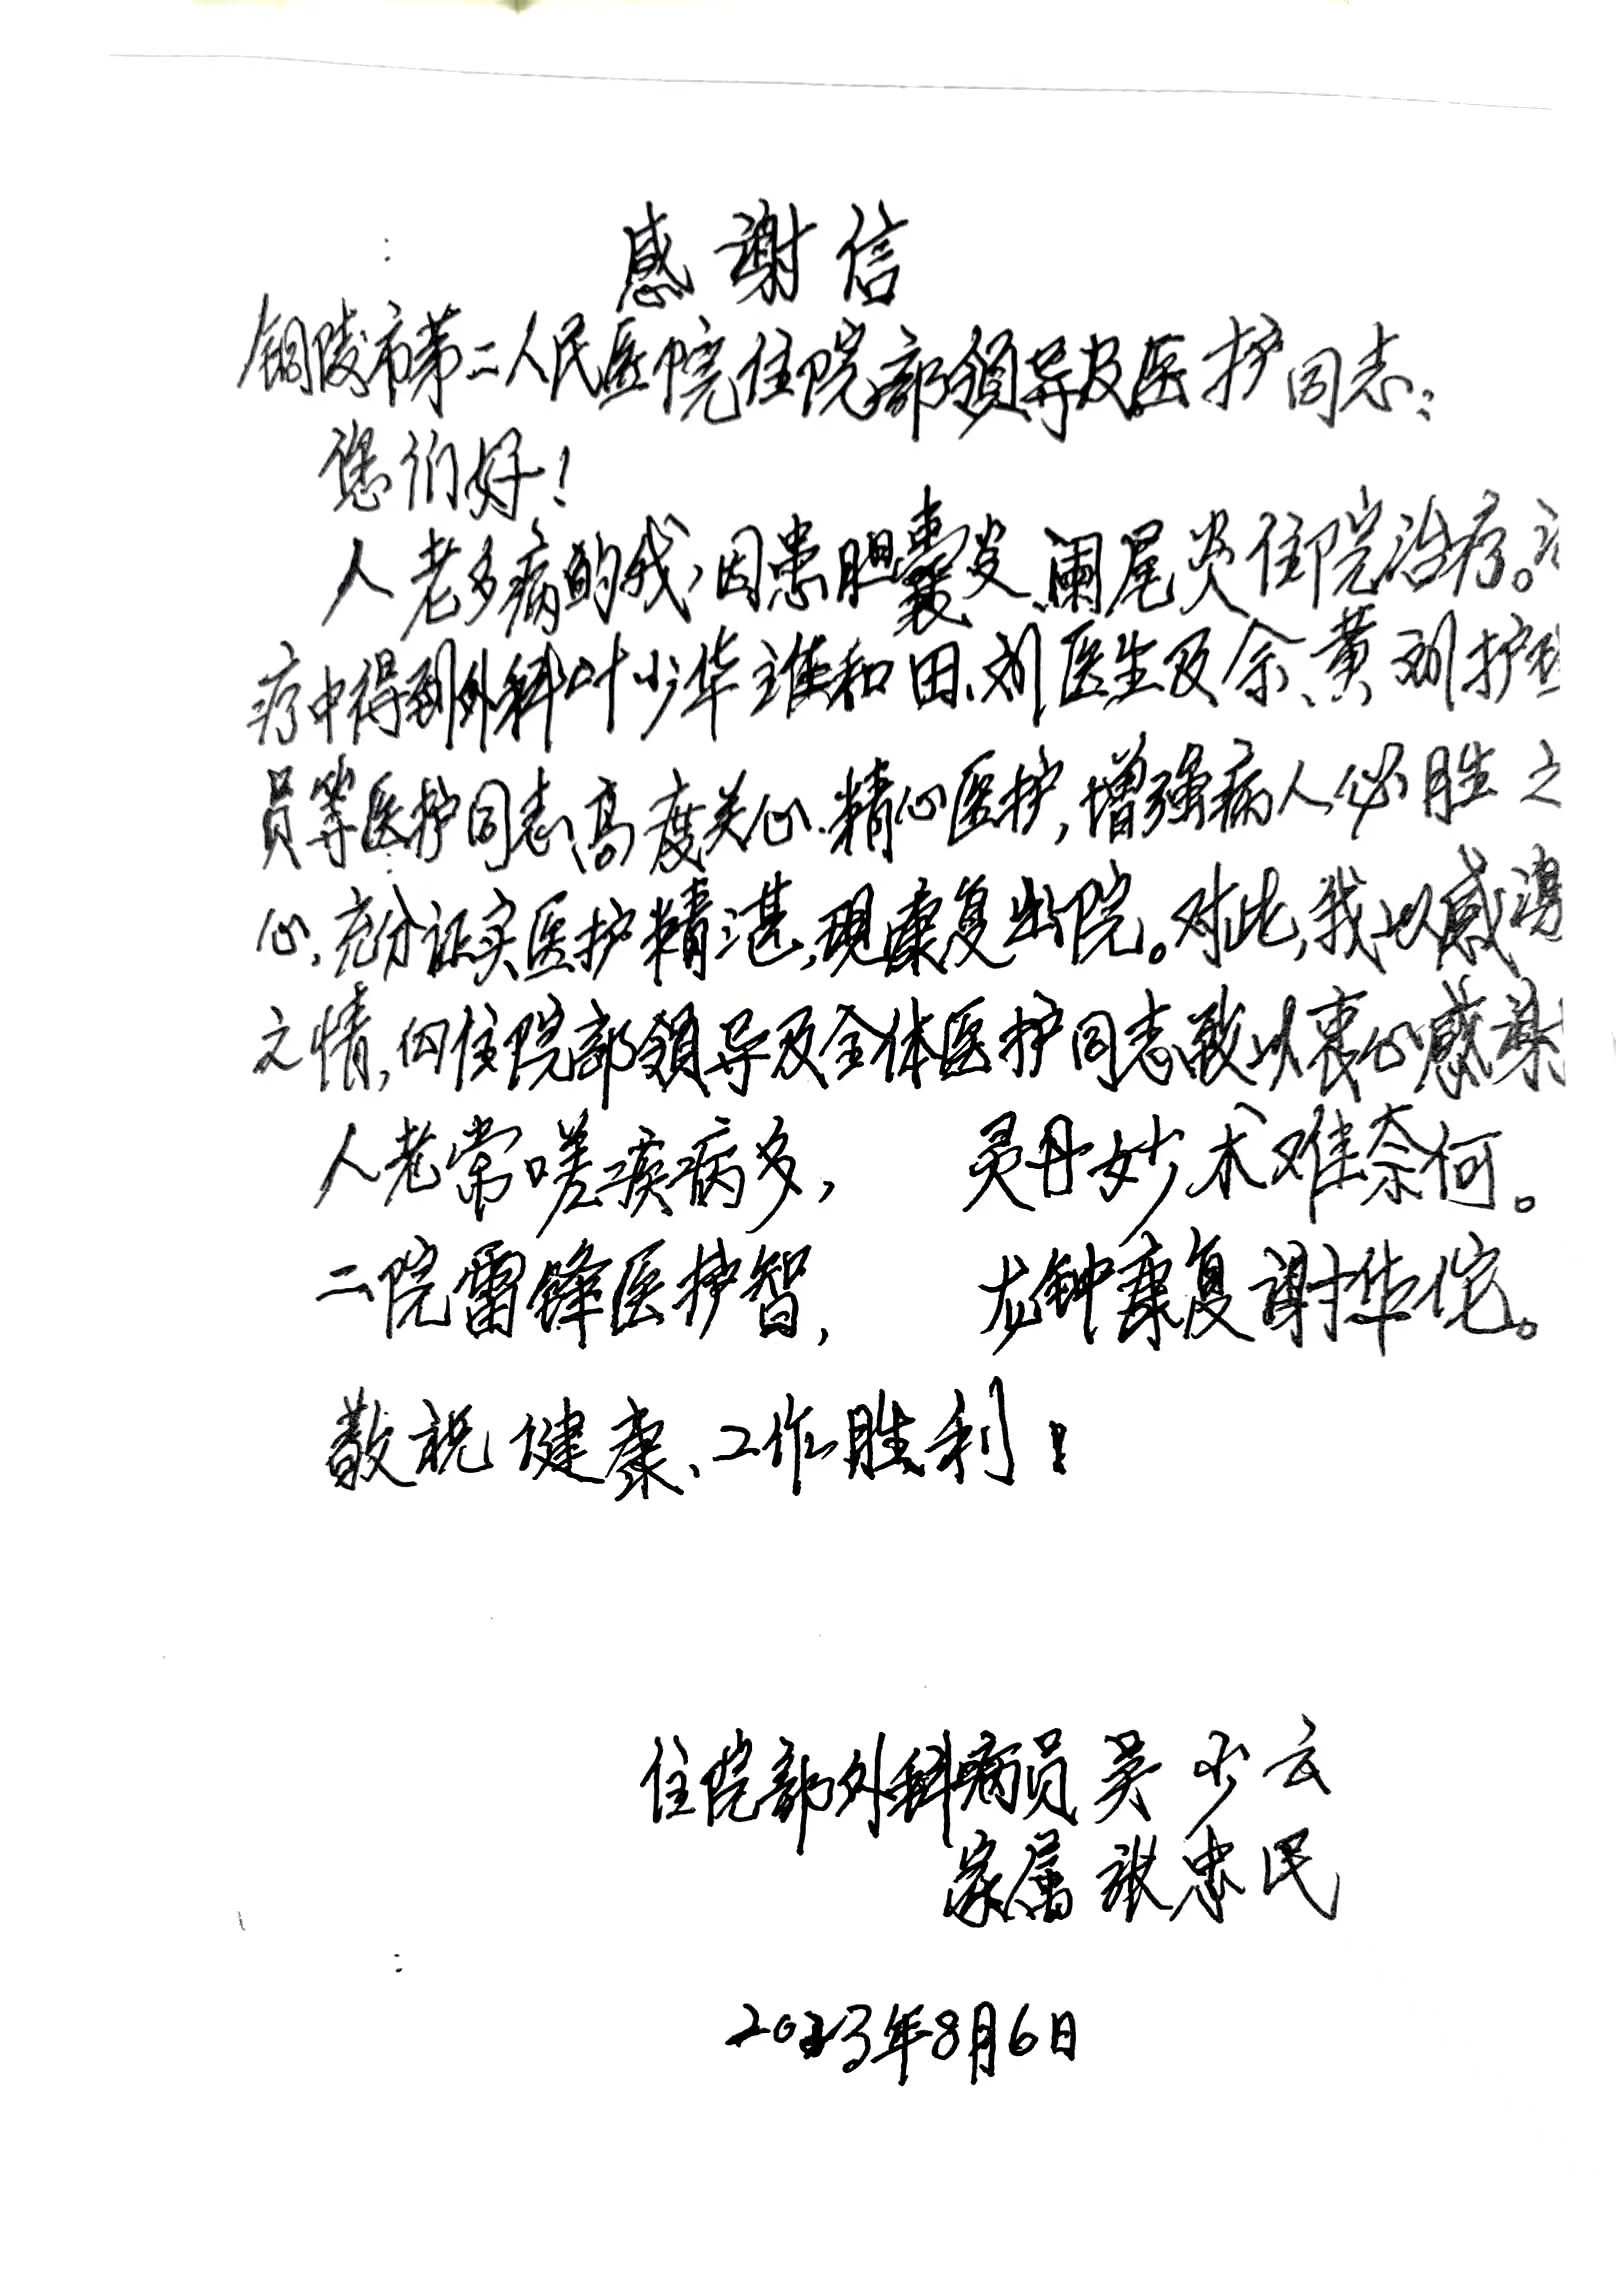 感谢信
铜陵市第二人民医院住院部领导及医护同志：
您们好！
人老多病的我，因患胆囊炎、阑尾炎住院治疗。
疗中得到外科叶少华主任和田、刘医生及余、黄、刘护
员等医护同志高度关心、精心医护，增强病人必胜之
心，充分证实医护精湛，现康复出院。对此，我以感
之情，向住院部领导及全体医护同志致以衷心感谢
人老常嗟疾病多，　灵丹妙术难奈何。
二院雷锋医护智，　龙钟康复谢华佗。
敬祝健康、工作胜利！
住院部外科病员 吴少云
家属 张忠民
2023年8月6日